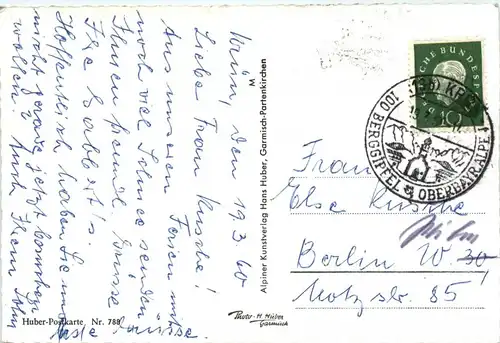 Krün, den 19.3.60
Liebe Frau Kusche!
Aus unseren Ferien mit
noch viel Schnee senden
Ihnen freundl. Grüße
Ihre
Hoffentlich haben Sie uns
nicht gerade jetzt
wollen? Auch Ihrem Sohn
Grüsse.
Huber-Postkarte Nr. 788
M
Alpiner Kunstverlag Hans Huber, Garmisch-Partenkirchen
Photo-H. Huber
Garmisch
CHE BUNDESP
10
KRÜN
100 BERGGIPFEL OBERBAYR. ALPEN
Frau
Else Kusche
Berlin W 30
Motzstr. 85